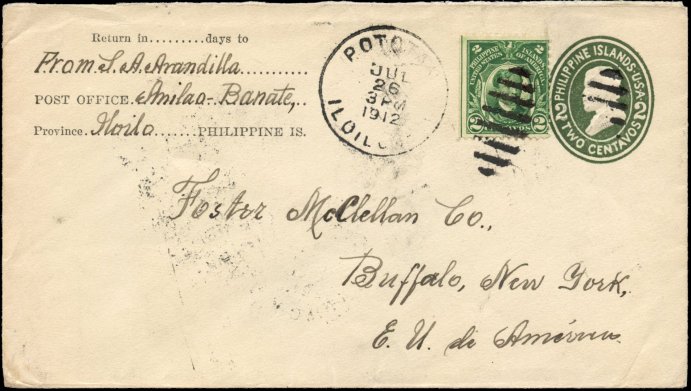 Return in.........days to
From S. A. Arandilla
POST OFFICE Anilao - Banate,
Province. Iloilo PHILIPPINE IS.
POTOTAN
JUL
26
3 PM
1912
ILOILO
2 PHILIPPINE ISLANDS 2
UNITED STATES OF AMERICA
2 CTVS. 2
PHILIPPINE ISLANDS·U·S·A·
2 TWO CENTAVOS 2
Foster McClellan Co.,
Buffalo, New York,
E. U. de América